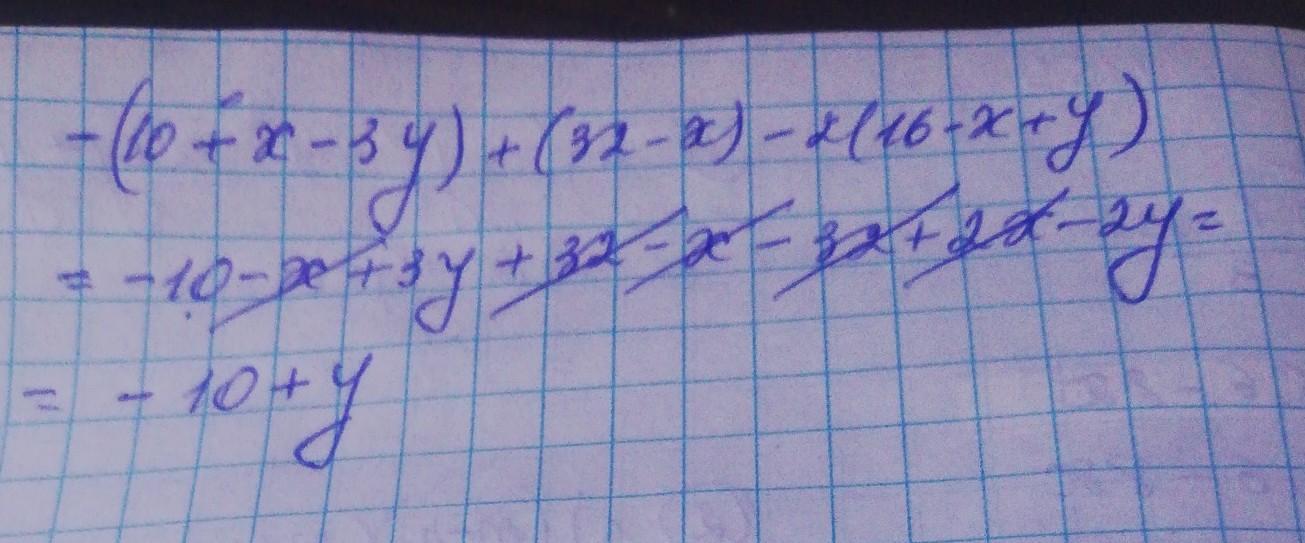 -(10+x-3y)+(32-x)-2(16-x+y)
=-10-x+3y+32-x-32+2x-2y=
=-10+y